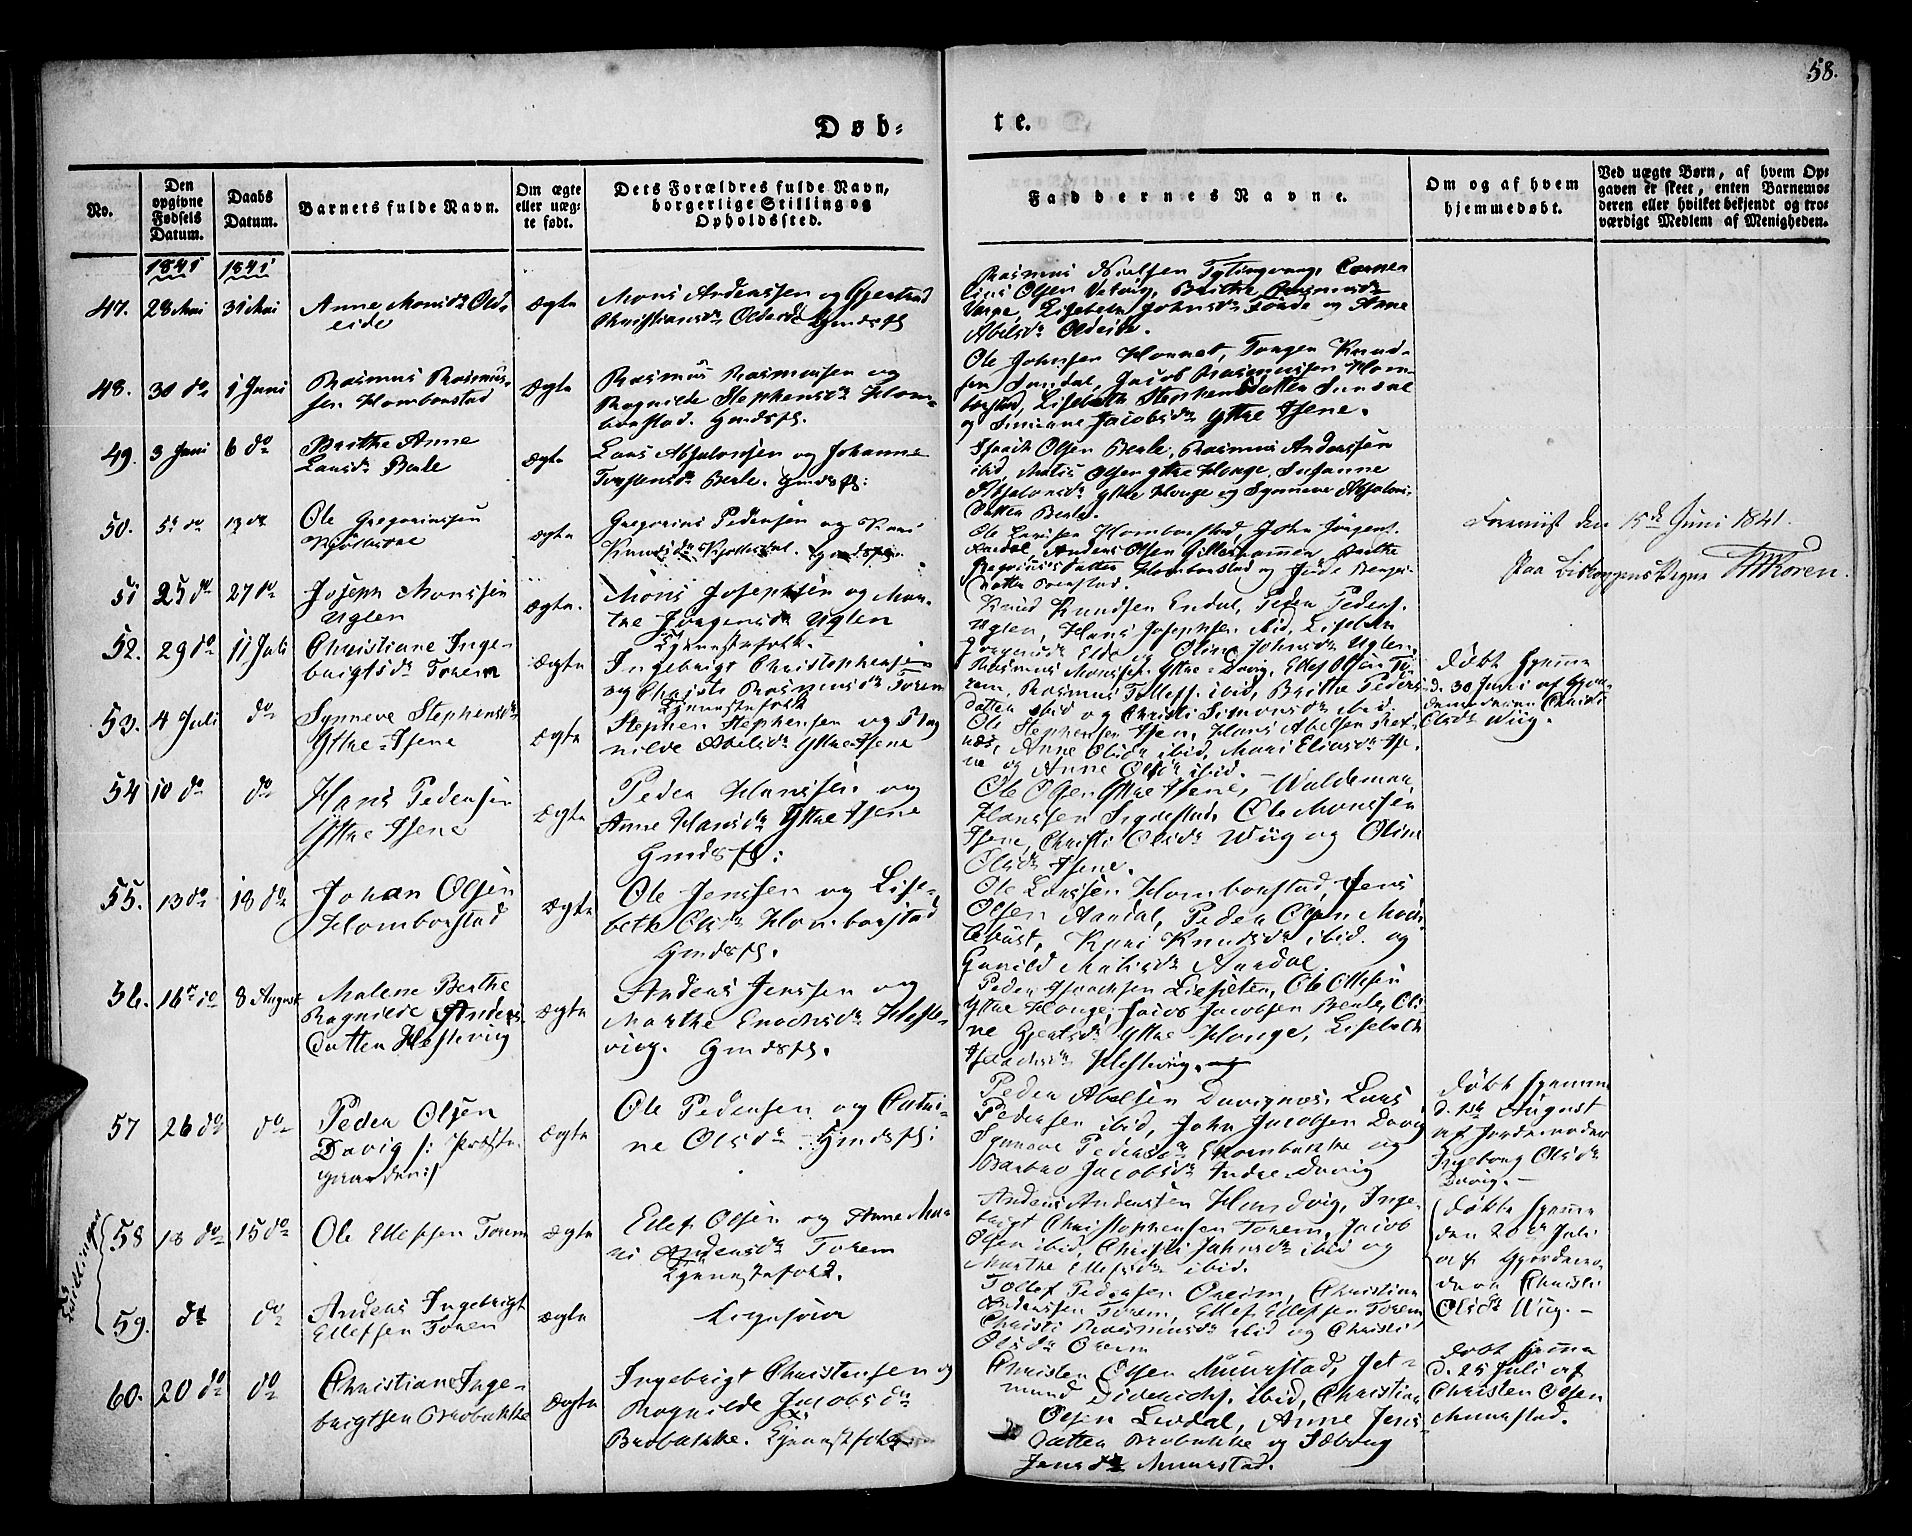 58.
Døb=
te.
No.
Den opgivne Fødsels Datum.
Daabs Datum.
Barnets fulde Navn.
Om ægte eller uæg- te født.
Dets Forældres fulde Navn, borgerlige Stilling og Opholdssted.
Faddernes Navne.
Om og af hvem hjemmedøbt.
Ved uægte Børn, af hvem Op- gaven er skeet, enten Barnemo- deren eller hvilket bekjendt og tro- værdigt Medlem af Menigheden.
1841 1841
47. 28 Mai 31 Mai
Anne Monsdr Old-
eide
Ægte
Mons Anderssen og Gjertrud
Christiansdr Oldeide Gmdsf.
Rasmus Nielsen Tytingvaag, Corne-
lius Olsen Vetvig, Brithe Rasmusdr
Varpe, Lisebeth Johnsdr Førde og Anne
Abelsdr Oldeide.
48. 30 do 1 Juni
Rasmus Rasmus-
sen Homborstad
Ægte
Rasmus Rasmussen og
Ragnilde Stephensdr Hom-
borstad. Gmdsf.
Ole Johnsen Honnes, Torger Knud-
sen Sundal, Jacob Rasmussen Hom-
borstad, Lisebeth Stephensdatter Sundal
og Siniane Jacobsdr Yttre Isene.
49. 3 Juni 6 do
Brithe Anne
Larsdr Berle
Ægte
Lars Absalonsen og Johanne
Torstensdr Berle. Gmdsf:
Isaach Olsen Berle, Rasmus Anderssen
ibid, Matis Olsen Yttre Houge, Susanne
Absalonsdr Yttre Houge og Synneve Absalons-
datter Berle.
50. 5 do 13 do
Ole Gregoriussen
ægte
Gregorius Pedersen og Kari
Knudsdr
Ole Larssen Homborstad, John Jørgens.
Aardal, Anders Olsen Gilleshammer, Brithe
Gregoriusdatter Homborstad og
datter
Fornyist den 15de Juni 1841.
Paa Biskoppens Vegne
Koren.
51 25 do 27 do
Joseph Monssen
Uglen
Ægte.
Mons Josephsen og Mar-
the Jørgensdr Uglen
Knud Knudsen Endal, Peder Peders.
Uglen, Hans Josephsen ibid, Lisebeth
Jørgensdr Elde og Oline Johnsdr Uglen.
52. 29 do 11 Juli
Christiane Inge-
brigtsdr Torem
Ægte
Tjenestefolk.
Ingebrigt Christophersen
og Christi Rasmusdr Torem
Rasmus Monssen Yttre-Davig, Ellef Olsen To-
rem, Rasmus Tollefs. ibid, Brithe Peders-
datter ibid og Christi Simonsdr ibid.
Døbt hjemme
d. 30 Juni af Gjor-
demoderen Christi
Olsdr Wiig.
53. 4 Juli do
Synneve Stephensdr
Yttre-Isene
Ægte
Tjenestefolk
Stephen Stephensen og Rag-
nilde Abelsdr Yttre Isene
Ole Stephensen Isene, Hans Abelsen
næs, Anne Olsdr ibid, Mari Eliasdr Ise-
ne og Anne Olsdr ibid.
54 10 do do
Hans Pedersen
Yttre Isene
Ægte
Peder Hanssen og
Anne Hansdr Yttre Isene
Gmdsf:
Ole Olsen Yttre Isene, Waldemar
Hanssen Sigdestad, Ole Monssen
Isene, Christi Olsdr Wiig og Oline
Olsdr Isene.
55. 13 do 18 do
Johan Olsen
Homborstad
Ægte
Ole Jenssen og Lise-
beth Olsdr Homborstad
Gmdsf.
Ole Larssen Homborstad, Jens
Olsen Aardal, Peder Olsen Mock-
lebust, Kari Knudsdr ibid. og
Gunild Matisdr Aardal
56. 16 do 8 August
Malene Berthe
Ragnilde Anders-
datter Hestevig
Ægte
Anders Jenssen og
Marthe Enochsdr Heste-
vig. Gmdsf.
Peder Isaachsen Lisæten, Ole Ollesen
Yttre Houge, Jacob Jacobsen Berle, Oli-
ne Gjertsdr Yttre Houge, Lisebeth
Isaachsdr Hestevig.
57 26 do do
Peder Olsen
Davig /: Præste-
gaarden:/
Ægte
Ole Pedersen og Catri-
ne Olsdr. Gmdsf:
Peder Abelsen Davignæs, Lars
Pedersen ibid, John Jacobsen Davig
Synneve Pedersdr og
Barbro Jacobsdr Indre-Davig
Døbt hjemme
d. 1ste August
af Jordemoder
Ingeborg Olsdr
Davig.
Tvillinger
58 18 do 15 do
Ole Ellefsen Torem
Ægte
Ellef Olsen og Anne Ma-
ri Andersdr Torem
Tjenestefolk.
Anders Anderssen Hundvig, Inge-
brigt Christophersen Torem, Jacob
Olsen ibid, Christi Johnsdr ibid og
Marthe Ellefsdr ibid.
Døbte hjemme
den 20de Juli
af Gjordemo-
deren Christi
Olsdr Wiig.
59. do do
Anders Ingebrigt
Ellefsen Torem
Ægte
Ligesom
Tollef Pedersen Oreim, Christian
Anderssen Torem, Ellef Ellefsen Torem,
Christi Rasmusdr ibid og Christi
Olsdr Oreim
60. 20 do do
Christiane Inge-
brigtsen Brobakke
Ægte
Ingebrigt Christensen og
Ragnilde Jacobsdr
Brobakke. Tjenestefolk
Christen Olsen Muurstad, Jet-
mund Didrichs. ibid, Christian
Olsen Levdal, Anne Jens-
datter Brobakke og
Jensdr Muurstad.
Døbt hjemme
d. 25 Juli af
Christen Olsen
Muurstad.